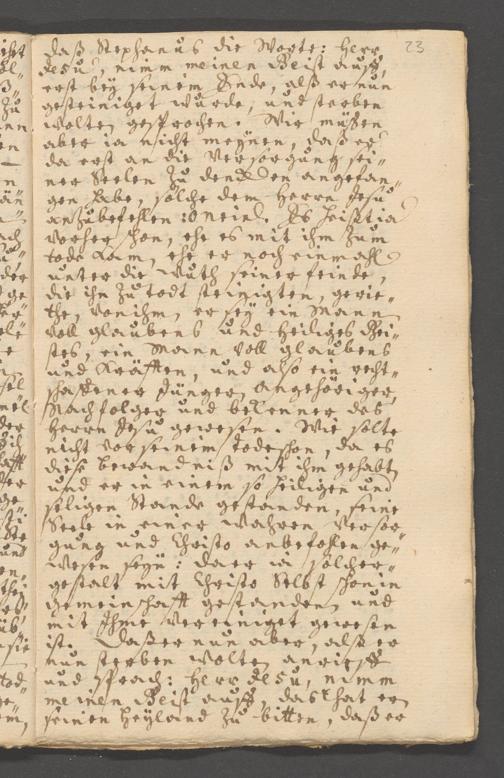 23
daß Stephanus die Worte: Herr
Jesu, nimm meinen Geist auff,
erst bey seinem Ende, alß er nun
gesteiniget wurde, und sterben
wolten gesprochen. Wir müßen
aber ia nicht meynen, daß er
da erst an die Versorgung sei-
ner Seelen zu dencken angefan-
gen habe, solche dem Herrn Jesu
anzubefehlen: O nein. Es heist ia
vorher schon, ehe es mit ihm zum
tode kam, ehe er noch einmahl
unter die Wuth seiner feinde,
die ihn zu todt steinigten, gerie-
the, von ihm, er sey ein Mann
voll glaubens und heiliges Gei-
stes, ein Mann voll glaubens
und Kräfften, und also ein recht-
schaffener Jünger, angehöriger,
Nachfolger und bekenner des
Herrn Jesu gewesen. Wie solte
nicht vor seinem tode schon, da es
diese bewandniß mit ihm gehabt,
und er in einem so heiligen und
seligen Stande gestanden, seine
Seele in einer wahren Versor-
gung und Christo anbefohlen ge-
wesen seyn: da er ia solcher-
gestalt mit Christo Selbst schon in
gemeinschafft gestanden, und
mit Ihme vereiniget gewesen
ist. Daß er nun aber, alß er
nun sterben wolten anrieff
und sprach: Herr Jesu, nimm
meinen Geist auff, das that er
seinen Heyland zu bitten, daß er